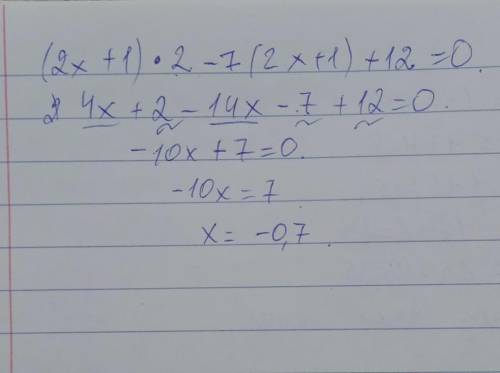 (2x+1)•2-7(2x+1)+12=0.
4x+2-14x-7+12=0.
-10x+7=0.
-10x=7
x= -0,7